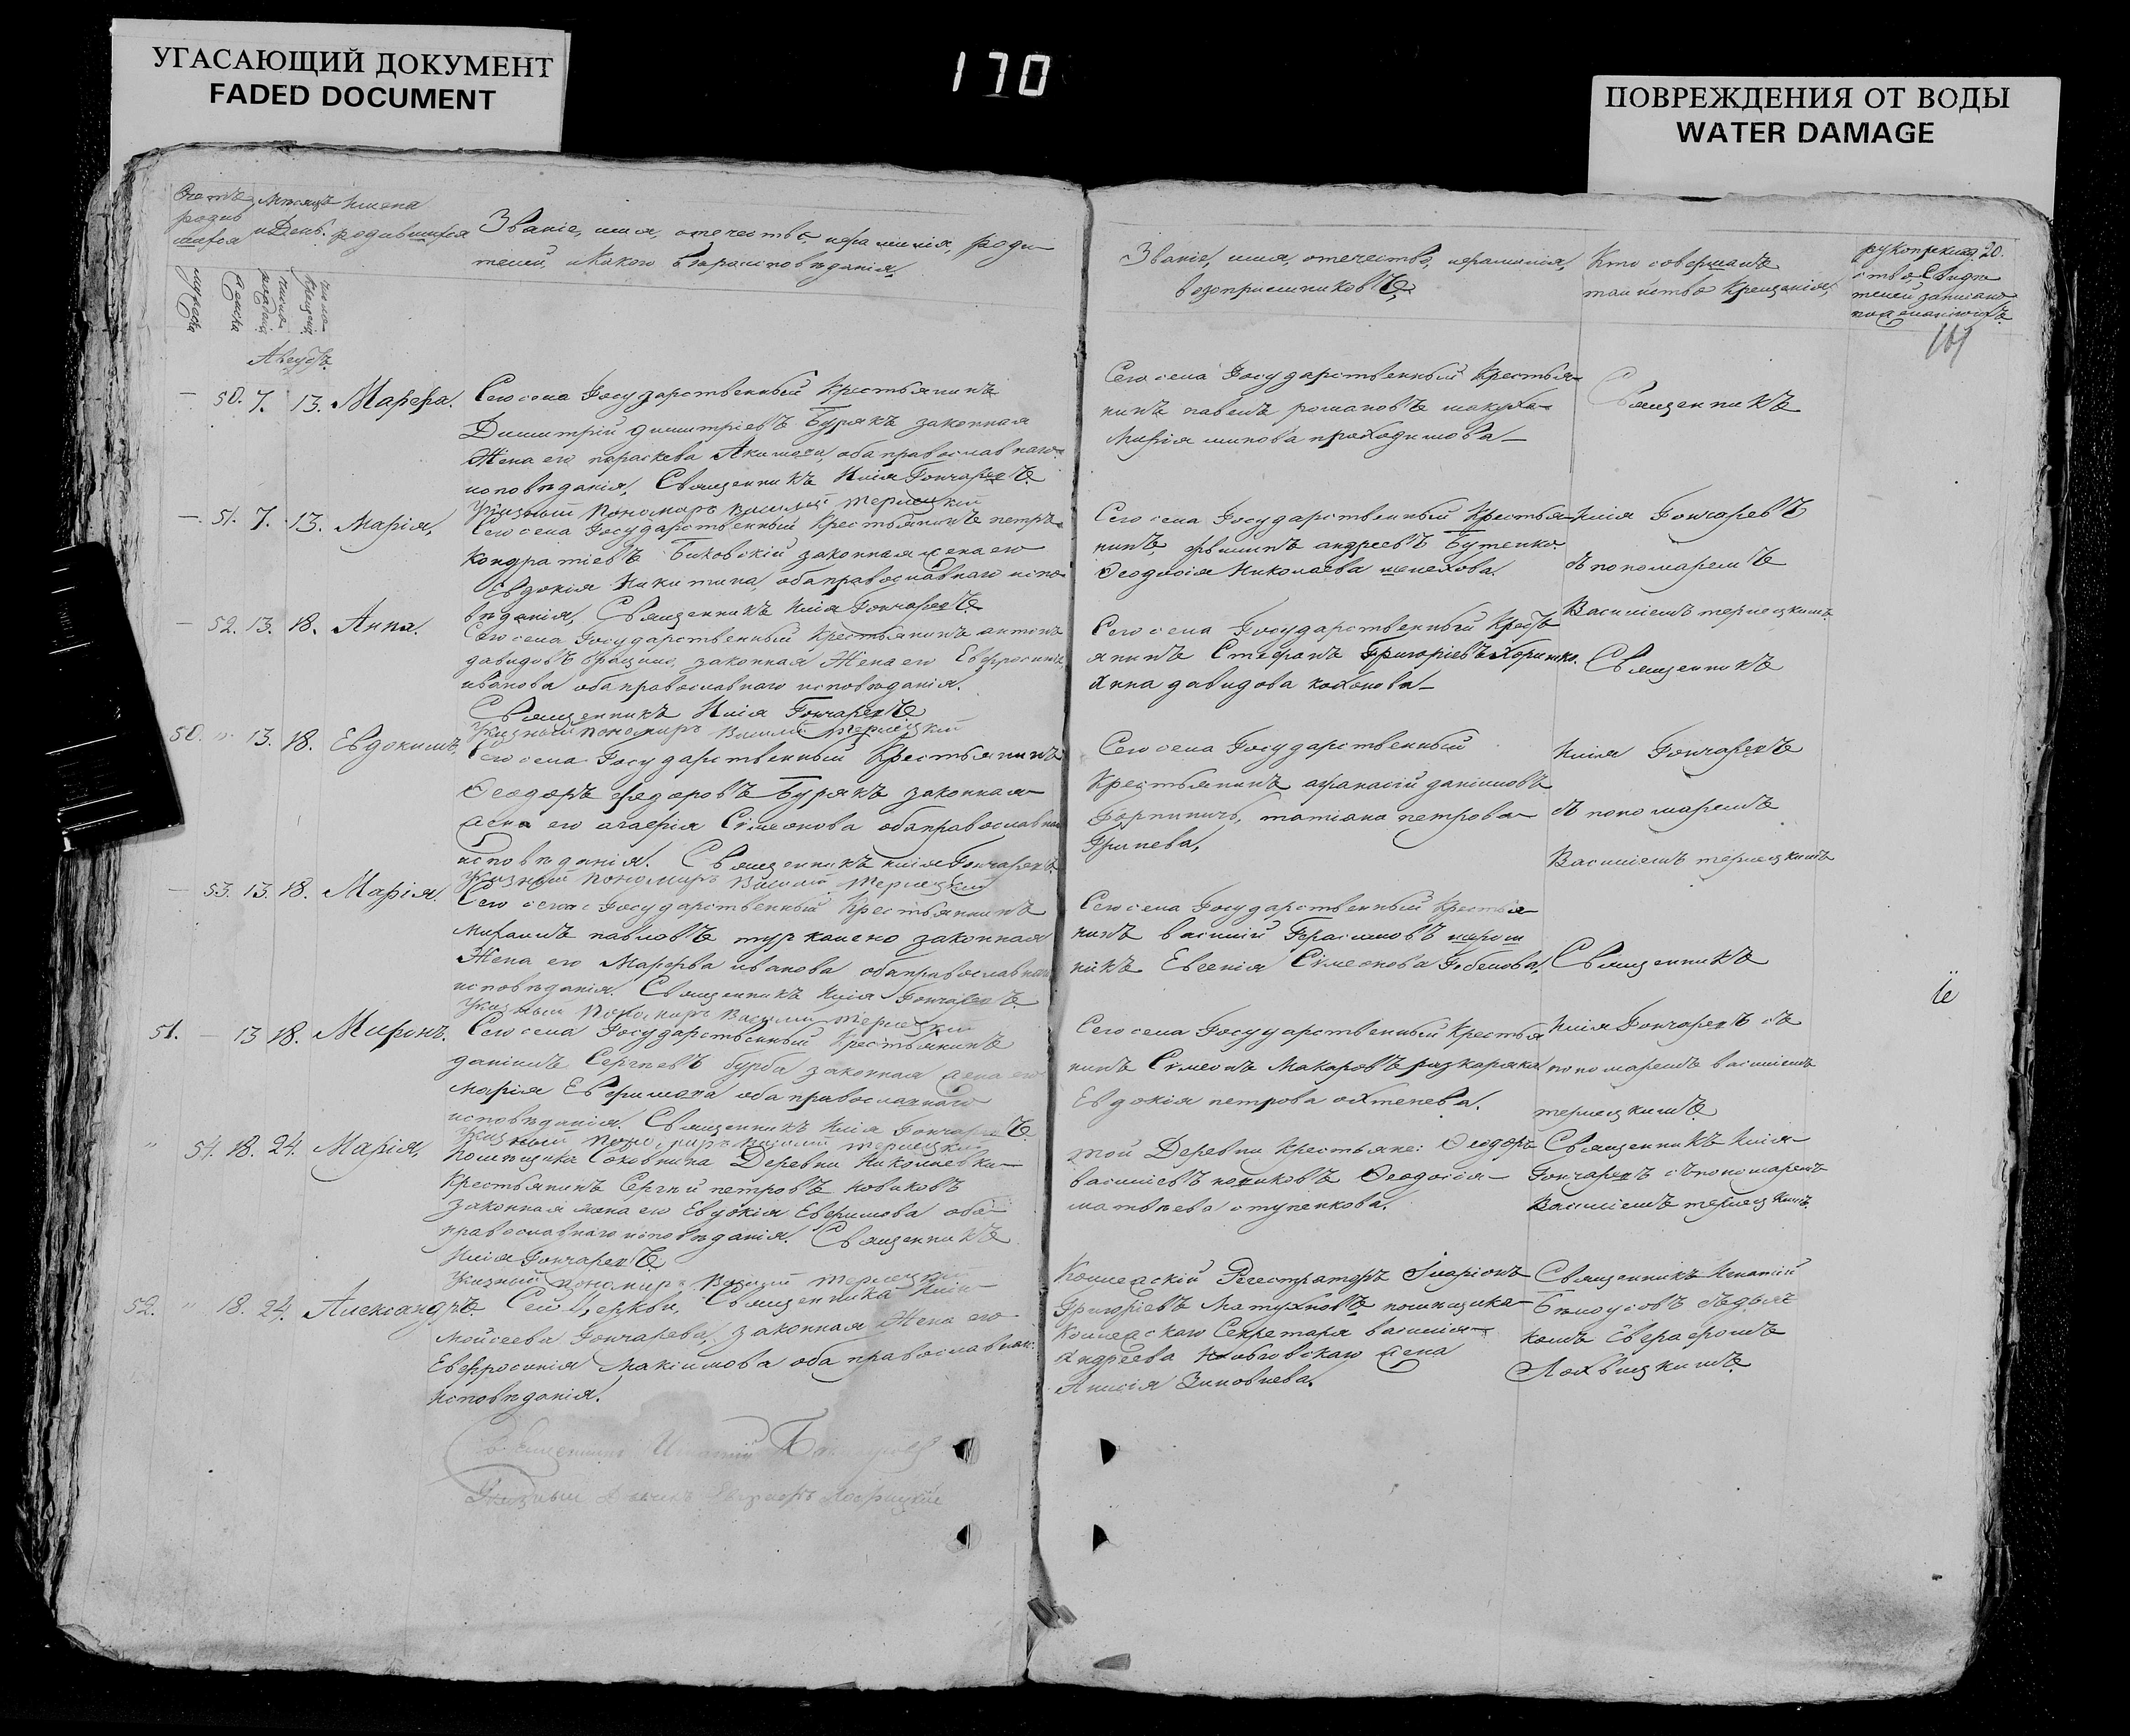 УГАСАЮЩИЙ ДОКУМЕНТ
FADED DOCUMENT
170
ПОВРЕЖДЕНИЯ ОТ ВОДЫ
WATER DAMAGE
Счетъ
родив
шихся
Мѣсяцъ
и День.
Имена
родившихся
Званіе, имя, отечество, и фамилія, роди
телей, и какого вѣроисповѣданія,
мужеска
женска
число
рожденія
число
крещенія
Августъ.
— 50. 7. 13. Марѳа.
Сего села Государственный Крестьянинъ
Димитрій димитріевъ Бурякъ законная
Жена его параскева Акимова, оба православнаго
исповѣданія, Священникъ Илія Гончаревъ
Указный Пономарь Василій Терлецкій
— 51. 7. 13. Марія,
Сего села Государственный Крестьянинъ петръ
Кондратіевъ Биковскій законная жена его
Евдокія Никитина, оба православнаго испо
вѣданія, Священникъ Илія Гончаревъ
— 52. 13. 18. Анна.
Сего села Государственный Крестьянинъ антонъ
давидовъ законная Жена его Евфросинія
иванова оба православнаго исповѣданія.
Священникъ Илія Гончаревъ
Указный пономарь Василій Терлецкій
50. " 13. 18. Евдокимъ,
Сего села Государственный Крестьянинъ
Ѳеодоръ федоровъ Бурякъ законная
жена его агафія Сѵмеонова оба православнаго
исповѣданія. Священникъ илія Гончаревъ
Указный пономарь Василій Терлецкій
— 53. 13. 18. Марія.
Сего села Государственный Крестьянинъ
Михаилъ павловъ законная
Жена его Марфва иванова оба православнаго
исповѣданія. Священникъ Илія Гончаревъ
Указный Пономарь Василій Терлецкій
51. — 13 18. Миронъ.
Сего села Государственный Крестьянинъ
даніилъ Сергѣевъ бурба законная жена его
Марія Евфимова оба православнаго
исповѣданія. Священникъ Илія Гончаревъ
Указный Пономарь Василій Терлецкій
" 54. 18. 24. Марія,
Помѣщика Соковнина Деревни Николаевки
Крестьянинъ Сергѣй петровъ новиковъ
законная жена его Евдокія Евфимова оба
православнаго исповѣданія. Священникъ
Илія Гончаревъ
Указный пономарь Василій Терлецкій
52. " 18. 24. Александръ.
Сей Церкви, Священника Иліи
Моисеева Гончарева, законная Жена его
Евфросинія Максимова оба православнаго
исповѣданія.
Священникъ Игнатій Бѣлоусовъ
Указный Дьячекъ
Званіе, имя, отечество, и фамилія,
возпріемниковъ
Кто совершалъ
таинство Крещенія,
рукоприклад. 20.
ство Свидѣ
телей записано
по желанію
169
Сего села Государственный Крестья
нинъ павелъ романовъ
Марія минова проходимова —
Священникъ
Сего села Государственный Крестья
нинъ, филипъ андреевъ Бутенко.
Ѳеодосія Николаева шелехова.
Илія Гончаревъ
съ пономаремъ
Василіемъ терлецкимъ
Сего села Государственный Кресть
янинъ Стефанъ Григоріевъ
Анна давидова —
Священникъ
Сего села Государственный
Крестьянинъ афанасій даниловъ
татіана петрова
Гринева,
Илія Гончаревъ
съ пономаремъ
Василіемъ терлецкимъ
Сего села Государственный Крестья
нинъ василій Герасимовъ мирош
никъ Евгенія Сѵмеонова
Священникъ
Сего села Государственный Крестья
нинъ Сѵмеонъ Макаровъ
Евдокія петрова
Илія Гончаревъ съ
пономаремъ василіемъ
терлецкимъ
той Деревни Крестьяне: Ѳеодоръ
василіевъ новиковъ Ѳеодосія
матвѣева ступенкова.
Священникъ Илія
Гончаревъ съ пономаремъ
Василіемъ терлецкимъ
Коллежскій Регестраторъ Іларіонъ
Григоріевъ помѣщика
Коллежскаго Секретаря василія
Андреева жена
Анисія Зиновіева.
Священникъ Игнатій
Бѣлоусовъ съ дьяч
комъ Евграфомъ
Лохвицкимъ